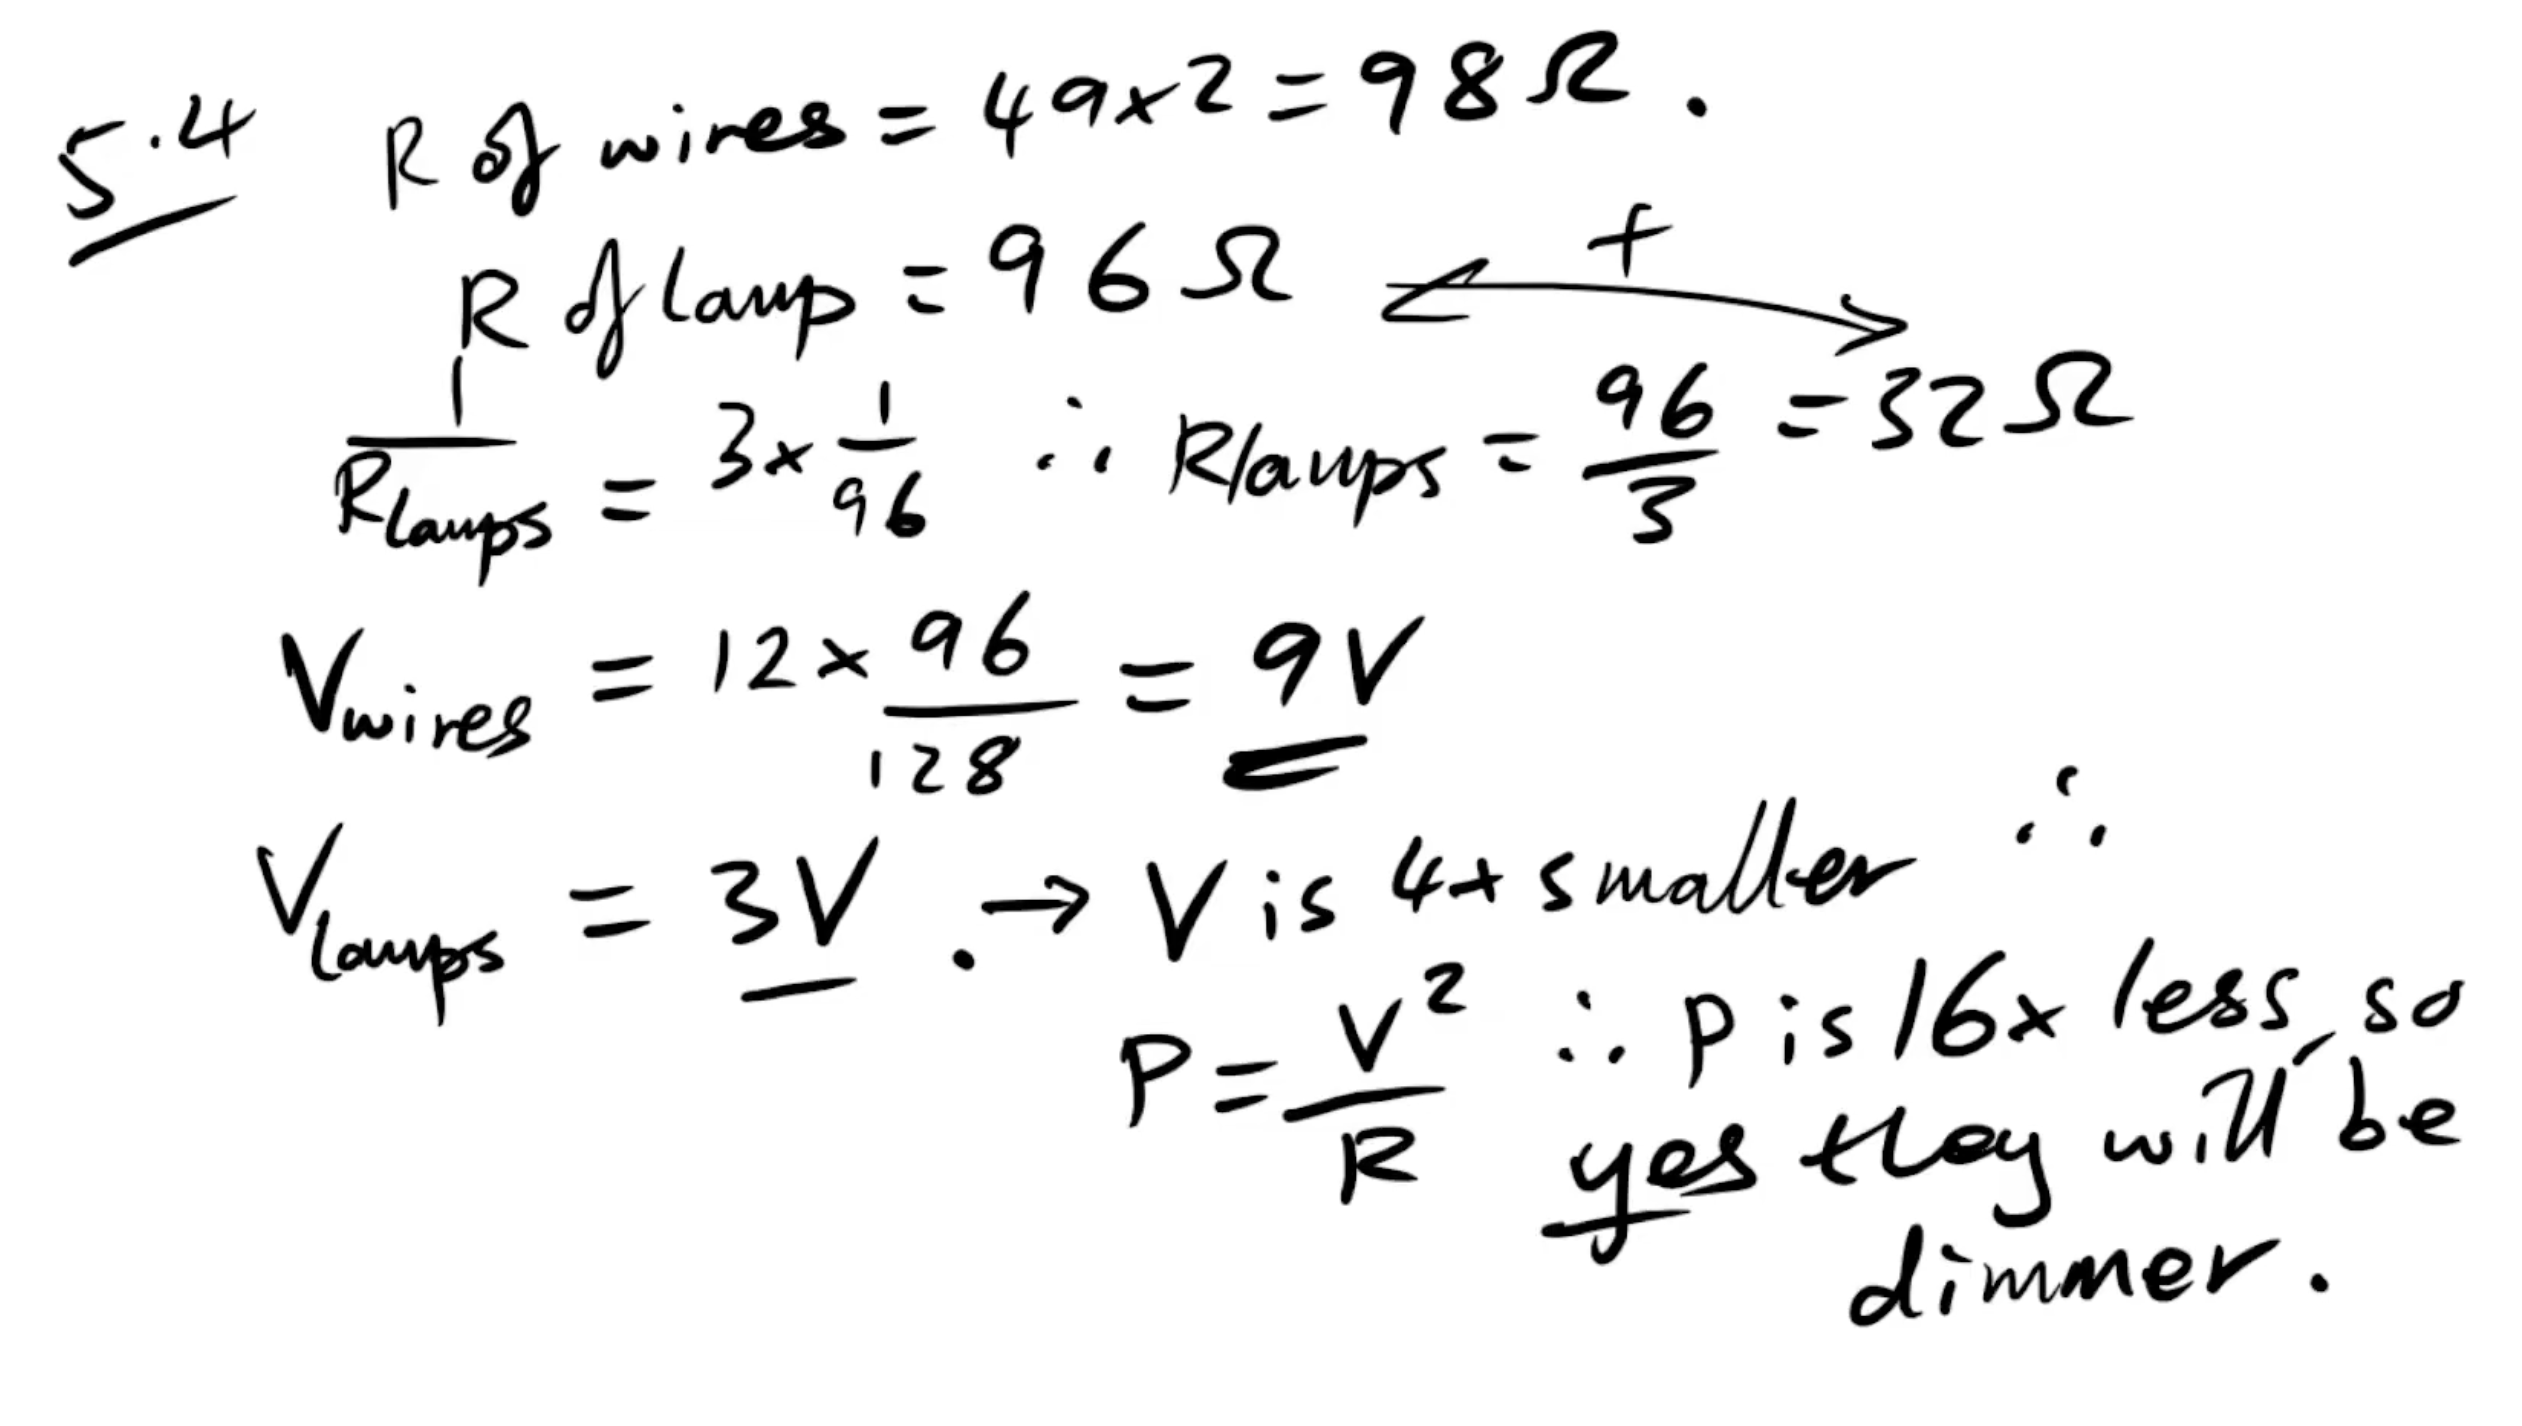 5.4 R of wires = 49x2 = 98Ω.
R of lamp = 96Ω +
1/Rlamps = 3x 1/96 ∴ Rlamps = 96/3 = 32Ω
Vwires = 12 x 96/128 = 9V
Vlamps = 3V. → V is 4x smaller ∴
P = V²/R ∴ P is 16x less, so
yes they will be
dimmer.